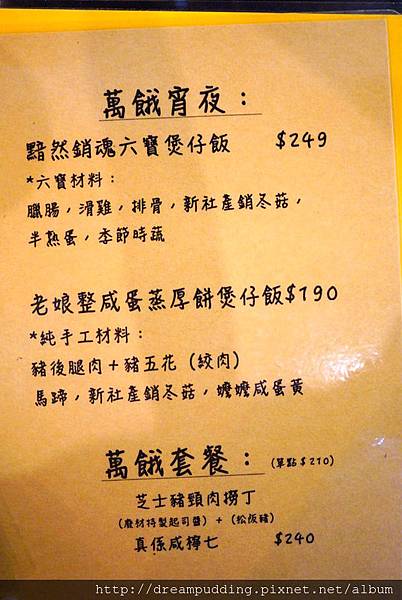 萬餓宵夜：
黯然銷魂六寶煲仔飯 $249
*六寶材料：
臘腸，滑雞，排骨，新社產銷冬菇，
半熟蛋，季節時蔬
老娘整咸蛋蒸厚餅煲仔飯$190
*純手工材料：
豬後腿肉＋豬五花（絞肉）
馬蹄，新社產銷冬菇，嬤嬤咸蛋黃
萬餓套餐：（單點$210）
芝士豬頸肉撈丁
（廢材特製起司醬）＋（松阪豬）
真係咸檸七 $240
http://dreampudding.pixnet.net/album